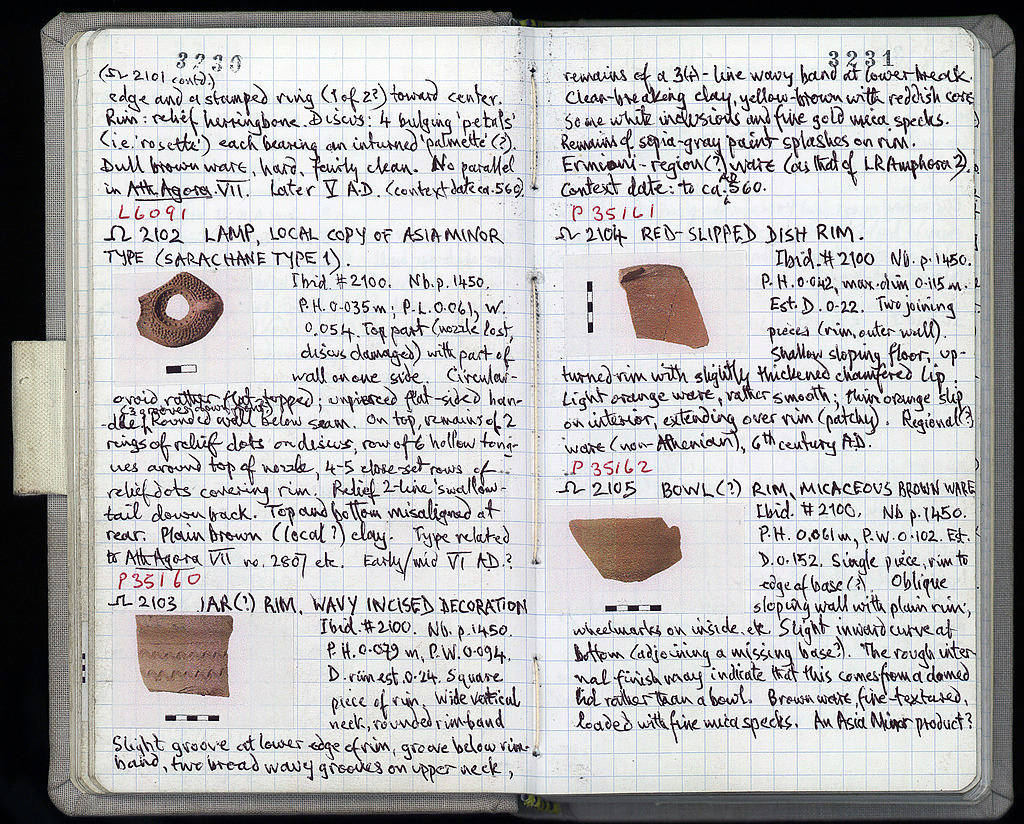 3230
(Ω 2101 contd.)
edge and a stamped ring (1 of 2?) toward center.
Rim: relief herringbone. Discus: 4 bulging 'petals'
(i.e. 'rosette') each bearing an inturned 'palmette' (?).
Dull brown ware, hard, fairly clean. No parallel
in Ath. Agora VII. Later V A.D. (context date ca. 560).
L6091
Ω 2102 LAMP, LOCAL COPY OF ASIA MINOR
TYPE (SARACHANE TYPE 1).
Ibid. #2100. Nb. p. 1450.
P.H. 0.035 m; P.L. 0.061, W.
0.054. Top part (nozzle lost,
discus damaged) with part of
wall on one side. Circular-
ovoid rather flat-topped; unpierced flat-sided han-
(3 grooves down front)
dle. Rounded wall below seam. On top, remains of 2
rings of relief dots on discus, row of 6 hollow tong-
ues around top of nozzle, 4-5 close-set rows of
relief dots covering rim. Relief 2-line 'swallow-
tail down back. Top and bottom misaligned at
rear. Plain brown (local?) clay. Type related
to Ath. Agora VII no. 2807 etc. Early/mid VI AD.?
P35160
Ω 2103 JAR(?) RIM, WAVY INCISED DECORATION
Ibid. #2100. Nb. p. 1450.
P.H. 0.079 m, P.W. 0.094.
D. rim est. 0.24. Square
piece of rim, wide vertical
neck, rounded rim-band
Slight groove at lower edge of rim, groove below rim-
band, two broad wavy grooves on upper neck,
3231
remains of a 3(+)-line wavy band at lower break.
Clean-breaking clay, yellow-brown with reddish core
Some white inclusions and fine gold mica specks.
Remains of sepia-gray paint splashes on rim.
Ermioni-region(?) ware (as that of LR Amphora 2).
Context date: to ca. AD 560.
P 35161
Ω 2104 RED-SLIPPED DISH RIM.
Ibid. #2100 Nb. p. 1450.
P.H. 0.042, max. dim 0.115 m.
Est. D. 0.22. Two joining
pieces (rim, outer wall).
Shallow sloping floor, up-
turned rim with slightly thickened chamfered lip.
Light orange ware, rather smooth; thin orange slip
on interior, extending over rim (patchy). Regional(?)
ware (non-Athenian), 6th century A.D.
P 35162
Ω 2105 BOWL(?) RIM, MICACEOUS BROWN WARE
Ibid. #2100. Nb p. 1450.
P.H. 0.061 m, P.W. 0.102. Est.
D. 0.152. Single piece, rim to
edge of base(?). Oblique
sloping wall with plain rim;
wheelmarks on inside etc. Slight inward curve at
bottom (adjoining a missing base?). The rough inter
nal finish may indicate that this comes from a domed
lid rather than a bowl. Brown ware, fine-textured,
loaded with fine mica specks. An Asia Minor product?